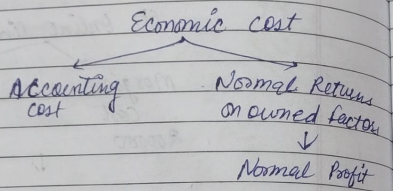 Economic cost
Accounting
cost
Normal Returns
on owned factors
Normal Profit